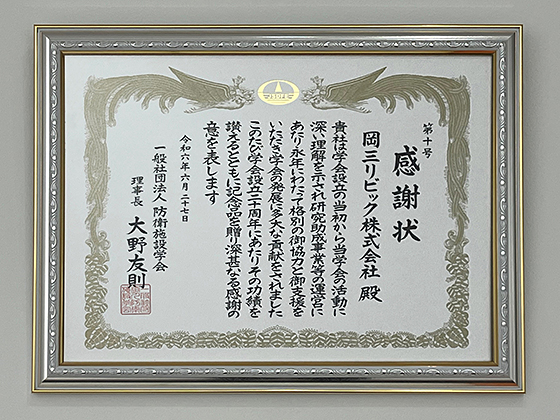 第十号
感謝状
岡三リビック株式会社 殿
貴社は学会設立の当初から当学会の活動に
深い理解を示され研究助成事業等の運営に
あたり永年にわたって格別の御協力と御支援を
いただき学会の発展に多大な貢献をされました
このたび学会設立二十周年にあたりその功績を
讃えるとともに記念品を贈り深甚なる感謝の
意を表します
令和六年六月二十七日
一般社団法人 防衛施設学会
理事長 大野友則